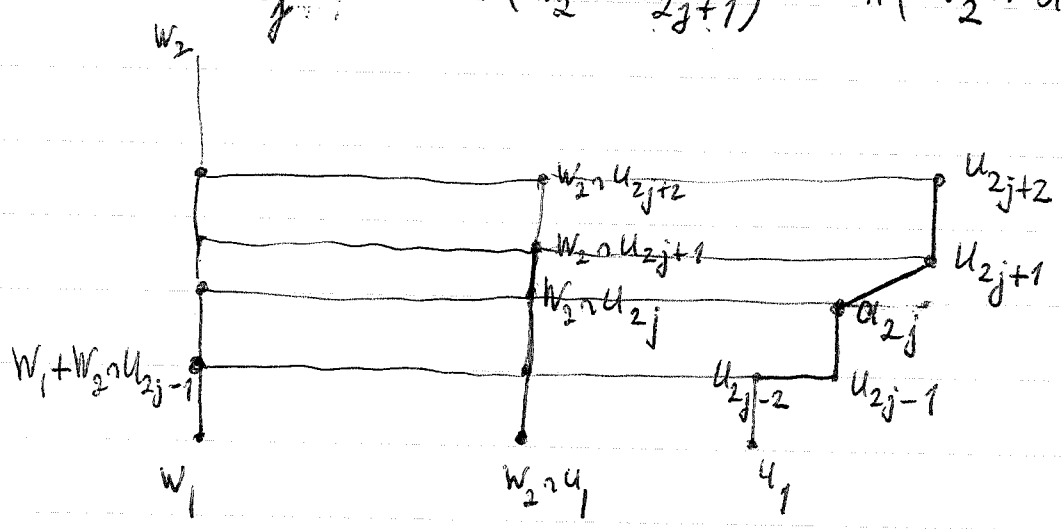 W₂
W₂∩U₂ⱼ₊₂ U₂ⱼ₊₂
W₂∩U₂ⱼ₊₁ U₂ⱼ₊₁
W₂∩U₂ⱼ U₂ⱼ
W₁+W₂∩U₂ⱼ₋₁ U₂ⱼ₋₂ U₂ⱼ₋₁
W₁ W₂∩U₁ U₁